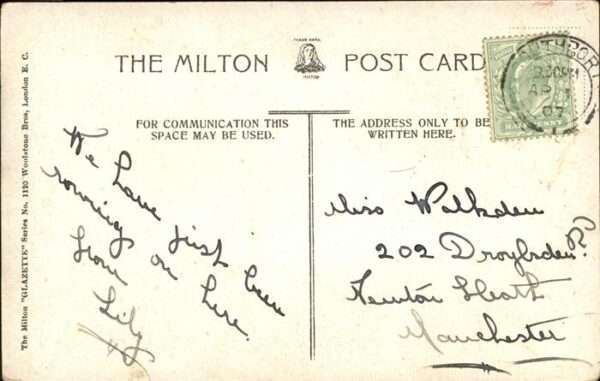 THE MILTON POST CARD
TRADE MARK
MILTON
FOR COMMUNICATION THIS
SPACE MAY BE USED.
THE ADDRESS ONLY TO BE
WRITTEN HERE.
SOUTHPORT
AP
07
We have just been
rowing on here.
from
Lily
Miss Walkden
202 Droylsden Rd
Newton Heath
Manchester
The Milton "GLAZETTE" Series No. 1120 Woolstone Bros, London E. C.